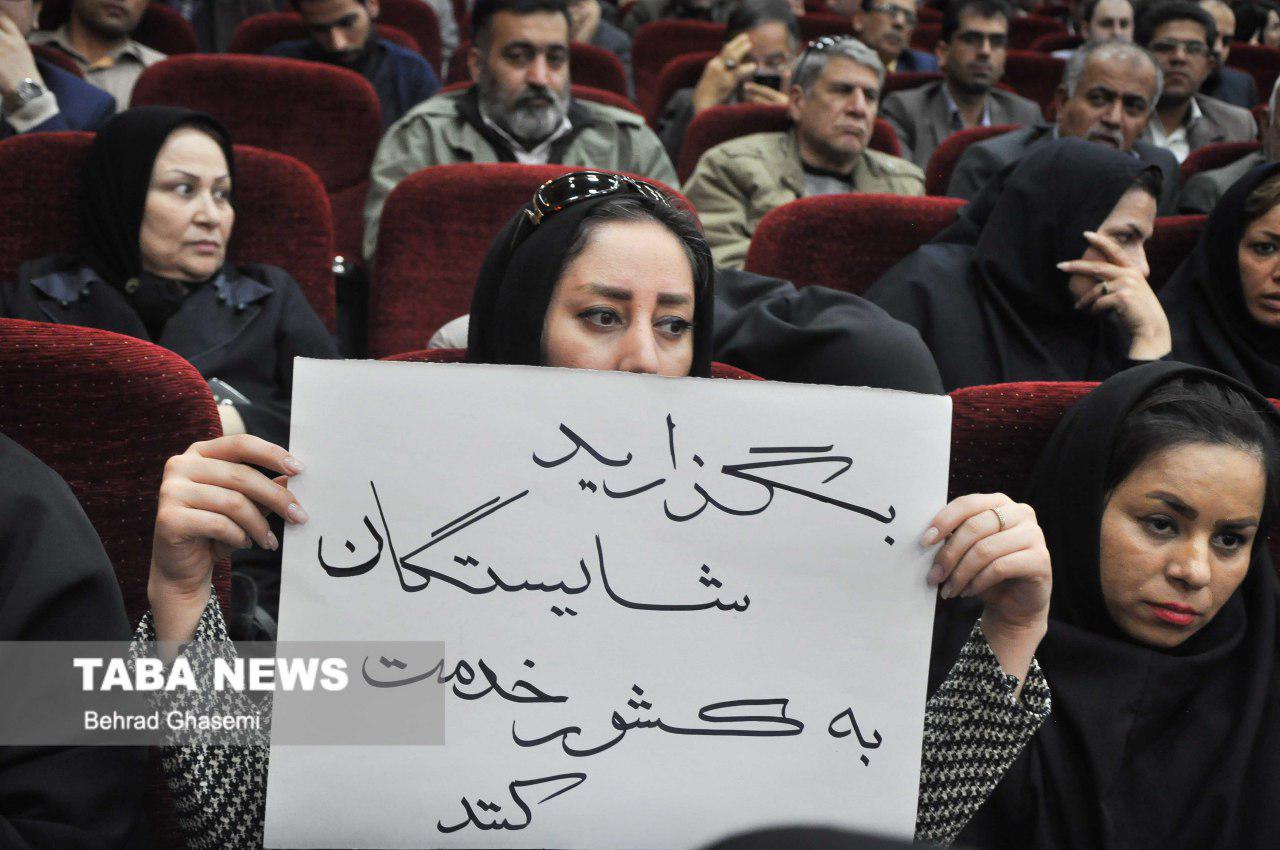 بگذارید
شایستگان
به کشور خدمت
کنند
TABA NEWS
Behrad Ghasemi